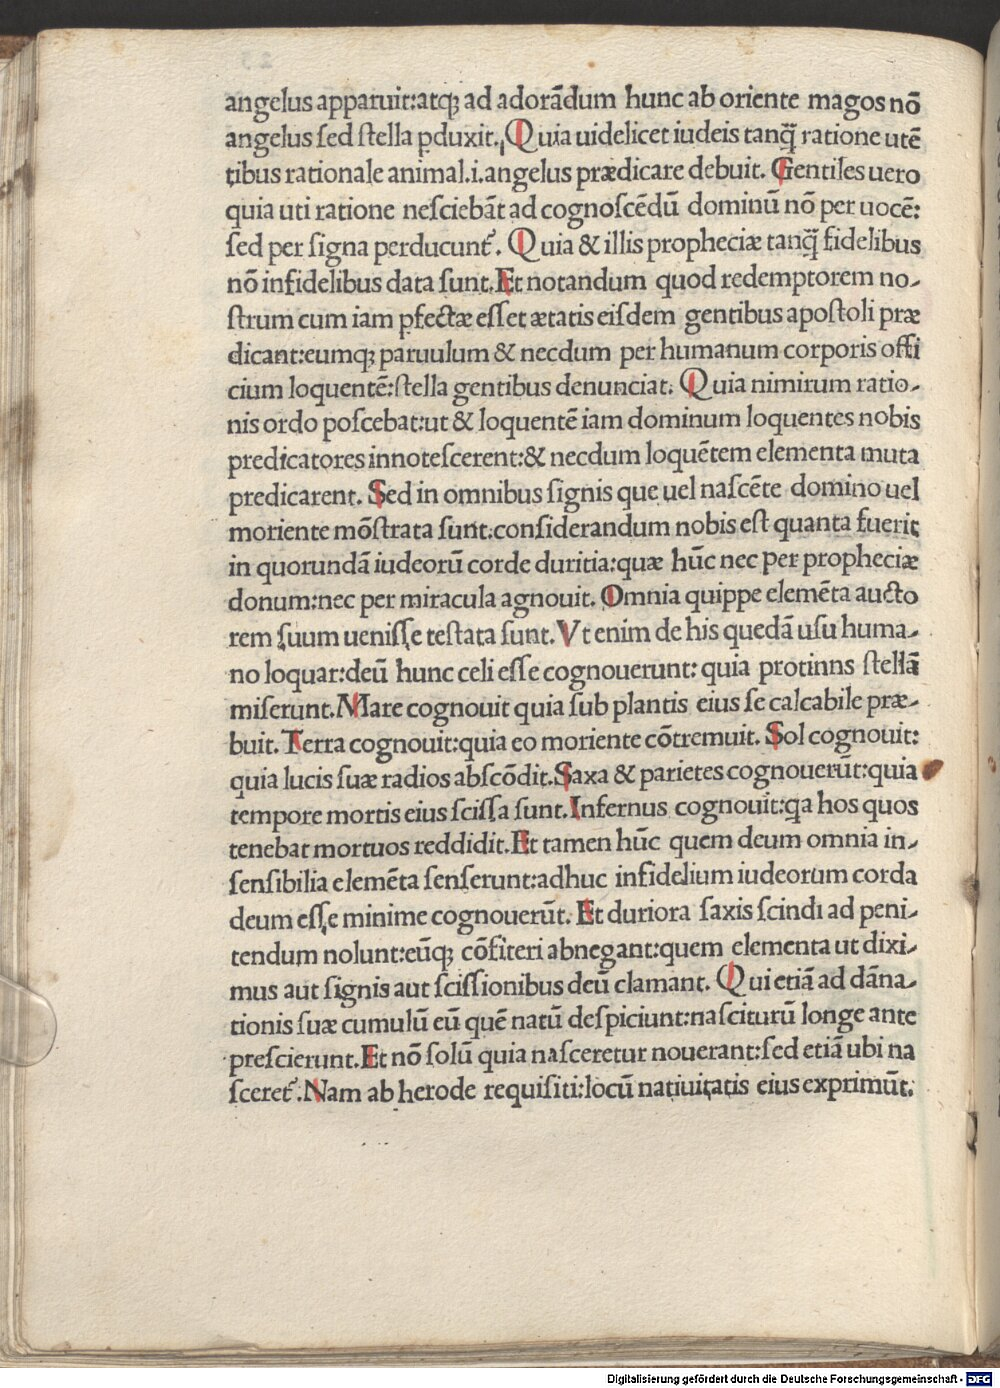 angelus apparuit:atqꝫ ad adorādum hunc ab oriente magos nō
angelus ſed ſtella ꝑduxit. Quia uidelicet iudeis tanq̄ ratione utē
tibus rationale animal.i.angelus prædicare debuit. Gentiles uero
quia uti ratione neſciebāt ad cognoſcēdū dominū nō per uocē:
ſed per ſigna perducunt᷑. Quia & illis propheciæ tanq̄ fidelibus
nō infidelibus data ſunt. Et notandum quod redemptorem no-
ſtrum cum iam ꝑfectæ eſſet ætatis eiſdem gentibus apoſtoli præ
dicant:eumqꝫ paruulum & necdum per humanum corporis offi
cium loquentē:ſtella gentibus denunciat. Quia nimirum ratio-
nis ordo poſcebat:ut & loquentē iam dominum loquentes nobis
predicatores innoteſcerent:& necdum loquētem elementa muta
predicarent. Sed in omnibus ſignis que uel naſcēte domino uel
moriente mōſtrata ſunt:conſiderandum nobis eſt quanta fuerit
in quorundā iudeorū corde duritia:quæ hūc nec per propheciæ
donum:nec per miracula agnouit. Omnia quippe elemēta aucto
rem ſuum ueniſſe teſtata ſunt. Vt enim de his quedā uſu huma-
no loquar:deū hunc celi eſſe cognouerunt: quia protinns ſtellā
miſerunt. Mare cognouit quia ſub plantis eius ſe calcabile præ-
buit. Terra cognouit:quia eo moriente cōtremuit. Sol cognouit:
quia lucis ſuæ radios abſcōdit. Saxa & parietes cognouerūt:quia
tempore mortis eius ſciſſa ſunt. Infernus cognouit:qa hos quos
tenebat mortuos reddidit. Et tamen hūc quem deum omnia in-
ſenſibilia elemēta ſenſerunt:adhuc infidelium iudeorum corda
deum eſſe minime cognouerūt. Et duriora ſaxis ſcindi ad peni-
tendum nolunt:eūqꝫ cōfiteri abnegant:quem elementa ut dixi-
mus aut ſignis aut ſciſſionibus deū clamant. Qui etiā ad dāna-
tionis ſuæ cumulū eū quē natū deſpiciunt:naſciturū longe ante
preſcierunt. Et nō ſolū quia naſceretur nouerant:ſed etiā ubi na
ſceret᷑. Nam ab herode requiſiti:locū natiuitatis eius exprimūt.
Digitalisierung gefördert durch die Deutsche Forschungsgemeinschaft - DFG